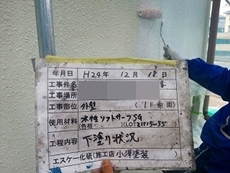 年月日 H24年 12月 18日
工事件名
工事場所
工事部位 外壁 (1F南面)
使用材料 水性ソフトサーフSG
工程内容 下塗り状況
エスケー化研(施工店 小澤塗装)